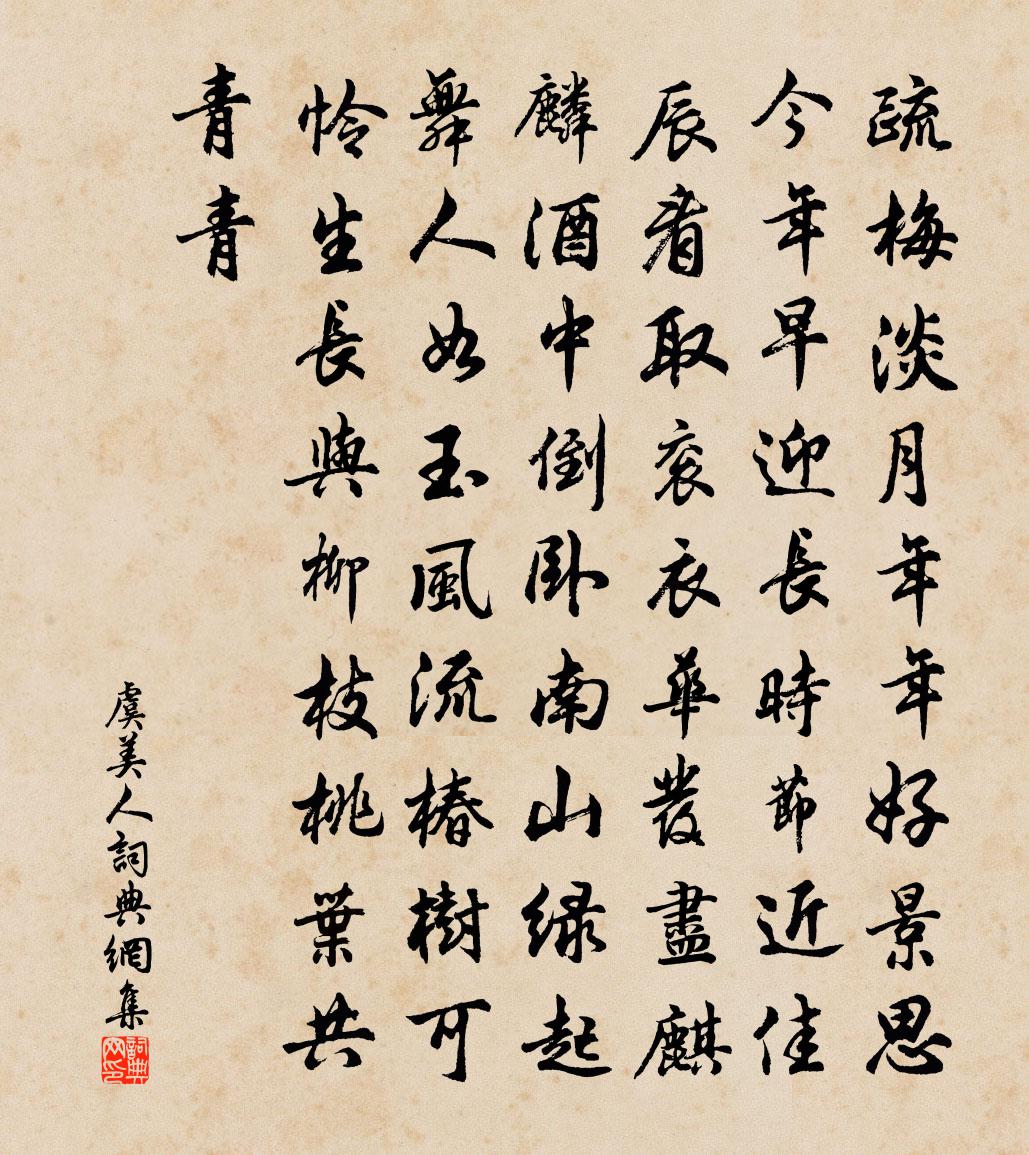 疏梅淡月年年好景思
今年早迎長時節近佳
辰看取衮衣華發盡麒
麟酒中倒卧南山绿起
舞人如玉風流椿樹可
怜生長與柳枝桃葉共
青青
虞美人詞典網集
詞典网印